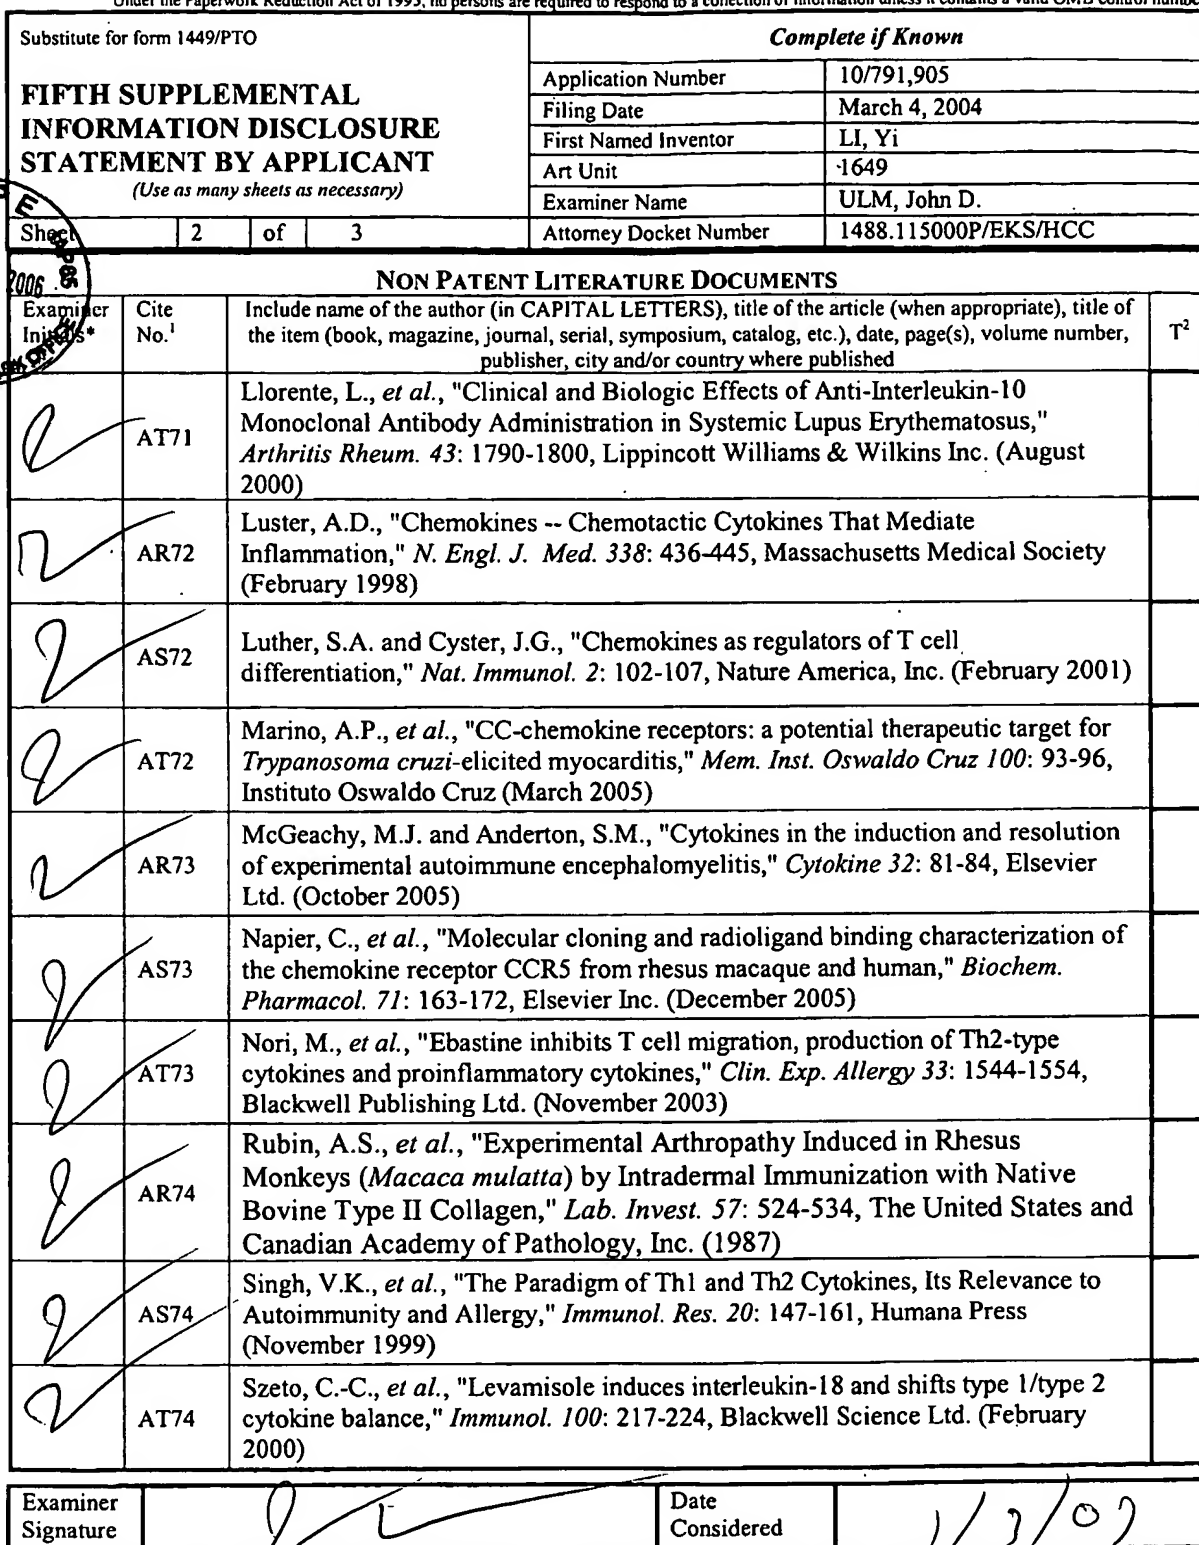 Under the Paperwork Reduction Act of 1995, no persons are required to respond to a collection of information unless it contains a valid OMB control number
Substitute for form 1449/PTO
FIFTH SUPPLEMENTAL
INFORMATION DISCLOSURE
STATEMENT BY APPLICANT
(Use as many sheets as necessary)
Sheet 2 of 3
Complete if Known
Application Number 10/791,905
Filing Date March 4, 2004
First Named Inventor LI, Yi
Art Unit 1649
Examiner Name ULM, John D.
Attorney Docket Number 1488.115000P/EKS/HCC
2006
NON PATENT LITERATURE DOCUMENTS
Examiner
Initials*
Cite
No.¹
Include name of the author (in CAPITAL LETTERS), title of the article (when appropriate), title of
the item (book, magazine, journal, serial, symposium, catalog, etc.), date, page(s), volume number,
publisher, city and/or country where published
T²
AT71
Llorente, L., et al., "Clinical and Biologic Effects of Anti-Interleukin-10
Monoclonal Antibody Administration in Systemic Lupus Erythematosus,"
Arthritis Rheum. 43: 1790-1800, Lippincott Williams & Wilkins Inc. (August
2000)
AR72
Luster, A.D., "Chemokines -- Chemotactic Cytokines That Mediate
Inflammation," N. Engl. J. Med. 338: 436-445, Massachusetts Medical Society
(February 1998)
AS72
Luther, S.A. and Cyster, J.G., "Chemokines as regulators of T cell
differentiation," Nat. Immunol. 2: 102-107, Nature America, Inc. (February 2001)
AT72
Marino, A.P., et al., "CC-chemokine receptors: a potential therapeutic target for
Trypanosoma cruzi-elicited myocarditis," Mem. Inst. Oswaldo Cruz 100: 93-96,
Instituto Oswaldo Cruz (March 2005)
AR73
McGeachy, M.J. and Anderton, S.M., "Cytokines in the induction and resolution
of experimental autoimmune encephalomyelitis," Cytokine 32: 81-84, Elsevier
Ltd. (October 2005)
AS73
Napier, C., et al., "Molecular cloning and radioligand binding characterization of
the chemokine receptor CCR5 from rhesus macaque and human," Biochem.
Pharmacol. 71: 163-172, Elsevier Inc. (December 2005)
AT73
Nori, M., et al., "Ebastine inhibits T cell migration, production of Th2-type
cytokines and proinflammatory cytokines," Clin. Exp. Allergy 33: 1544-1554,
Blackwell Publishing Ltd. (November 2003)
AR74
Rubin, A.S., et al., "Experimental Arthropathy Induced in Rhesus
Monkeys (Macaca mulatta) by Intradermal Immunization with Native
Bovine Type II Collagen," Lab. Invest. 57: 524-534, The United States and
Canadian Academy of Pathology, Inc. (1987)
AS74
Singh, V.K., et al., "The Paradigm of Th1 and Th2 Cytokines, Its Relevance to
Autoimmunity and Allergy," Immunol. Res. 20: 147-161, Humana Press
(November 1999)
AT74
Szeto, C.-C., et al., "Levamisole induces interleukin-18 and shifts type 1/type 2
cytokine balance," Immunol. 100: 217-224, Blackwell Science Ltd. (February
2000)
Examiner
Signature
Date
Considered